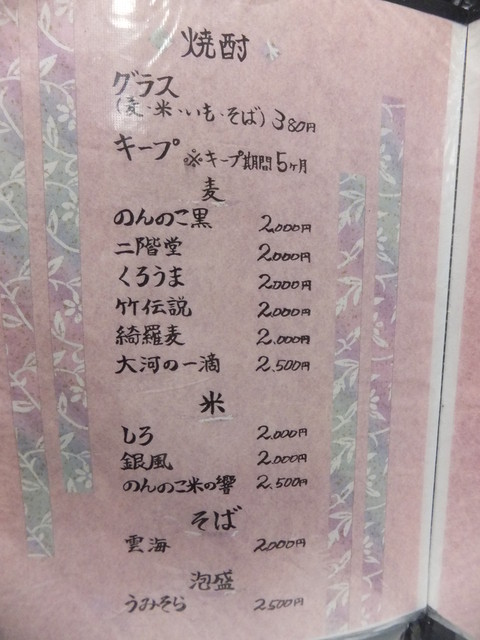 焼酎
グラス
(麦・米・いも・そば) 380円
キープ ※キープ期間5ヶ月
麦
のんのこ黒 2,000円
二階堂 2,000円
くろうま 2,000円
竹伝説 2,000円
綺羅麦 2,000円
大河の一滴 2,500円
米
しろ 2,000円
銀風 2,000円
のんのこ米の響 2,500円
そば
雲海 2,000円
泡盛
うみそら 2,500円